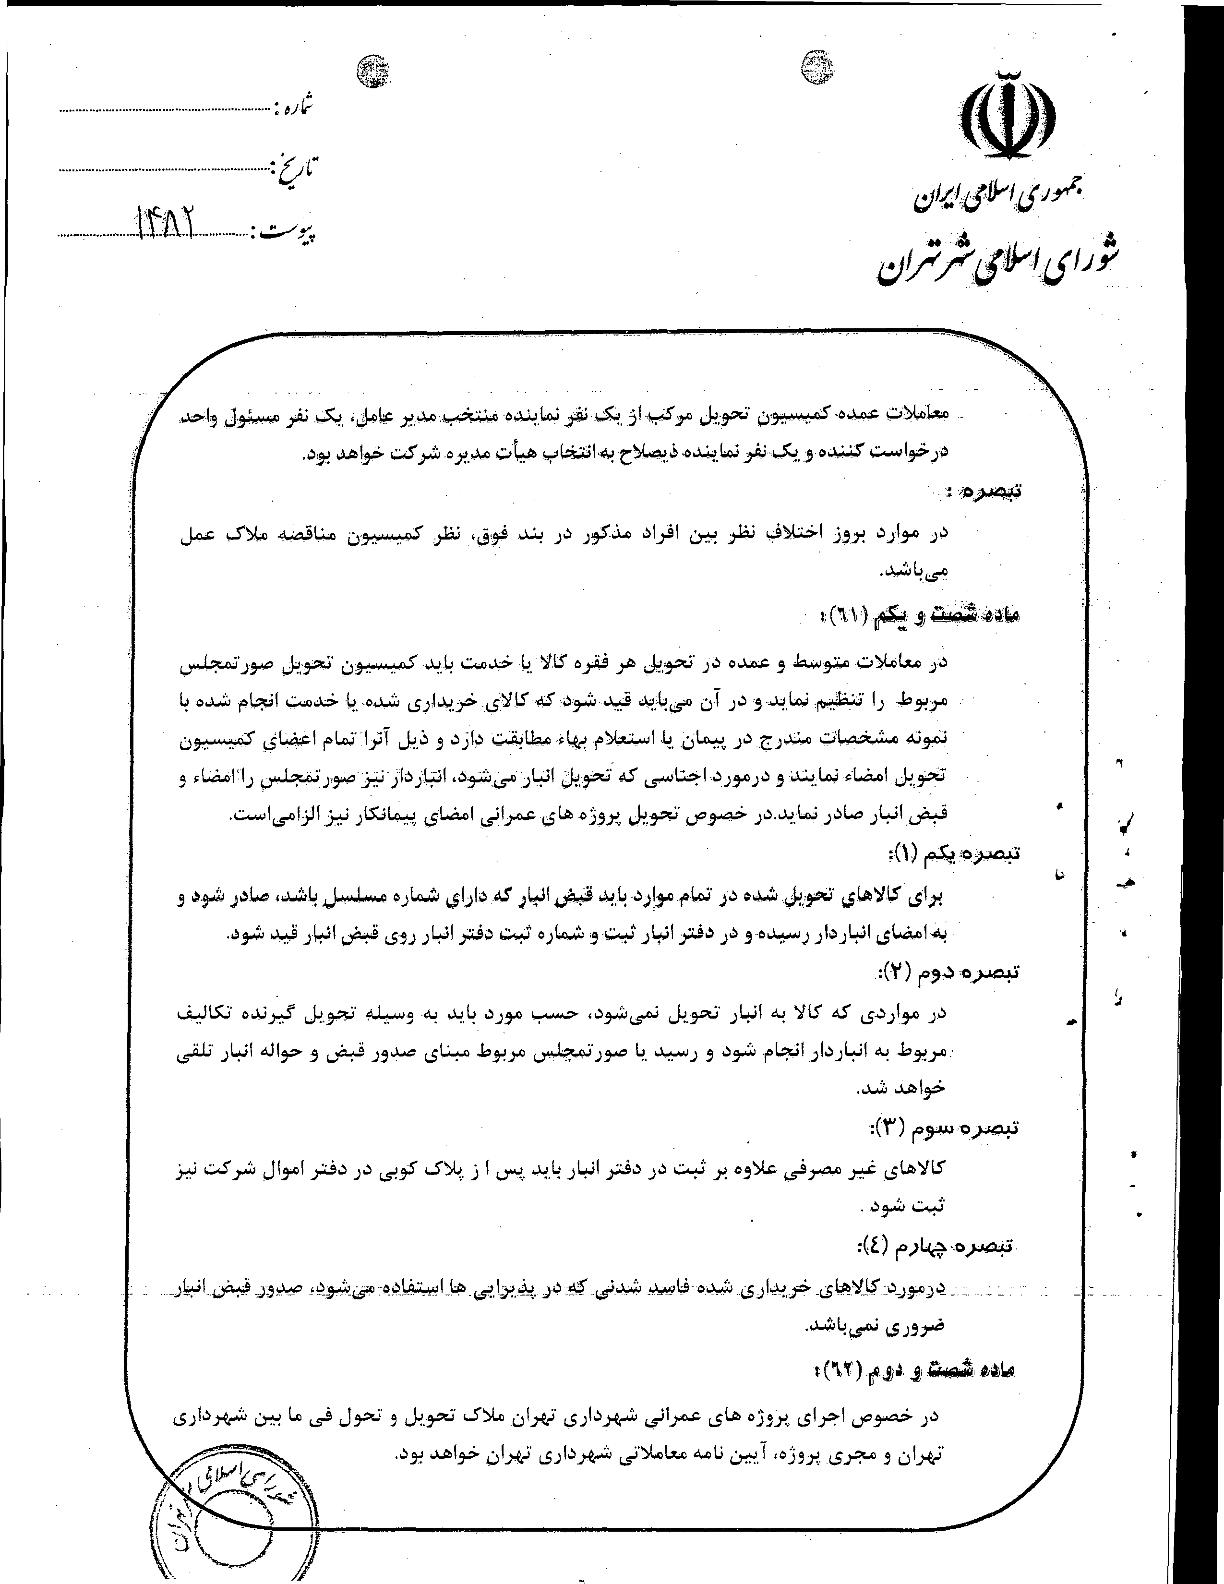 جمهوری اسلامی ایران
شورای اسلامی شهر تهران
شماره :
تاریخ :
پیوست : ۱۴۸۲
معاملات عمده کمیسیون تحویل مرکب از یک نفر نماینده منتخب مدیر عامل، یک نفر مسئول واحد
درخواست کننده و یک نفر نماینده ذیصلاح به انتخاب هیأت مدیره شرکت خواهد بود.
تبصره :
در موارد بروز اختلاف نظر بین افراد مذکور در بند فوق، نظر کمیسیون مناقصه ملاک عمل
می‌باشد.
ماده شصت و یکم (٦١):
در معاملات متوسط و عمده در تحویل هر فقره کالا یا خدمت باید کمیسیون تحویل صورتمجلس
مربوط را تنظیم نماید و در آن می‌باید قید شود که کالای خریداری شده یا خدمت انجام شده با
نمونه مشخصات مندرج در پیمان یا استعلام بهاء مطابقت دارد و ذیل آنرا تمام اعضای کمیسیون
تحویل امضاء نمایند و درمورد اجناسی که تحویل انبار می‌شود، انباردار نیز صورتمجلس را امضاء و
قبض انبار صادر نماید.در خصوص تحویل پروژه های عمرانی امضای پیمانکار نیز الزامی‌است.
تبصره یکم (١):
برای کالاهای تحویل شده در تمام موارد باید قبض انبار که دارای شماره مسلسل باشد، صادر شود و
به امضای انباردار رسیده و در دفتر انبار ثبت و شماره ثبت دفتر انبار روی قبض انبار قید شود.
تبصره دوم (٢):
در مواردی که کالا به انبار تحویل نمی‌شود، حسب مورد باید به وسیله تحویل گیرنده تکالیف
مربوط به انباردار انجام شود و رسید یا صورتمجلس مربوط مبنای صدور قبض و حواله انبار تلقی
خواهد شد.
تبصره سوم (٣):
کالاهای غیر مصرفی علاوه بر ثبت در دفتر انبار باید پس ا ز پلاک کوبی در دفتر اموال شرکت نیز
ثبت شود .
تبصره چهارم (٤):
درمورد کالاهای خریداری شده فاسد شدنی که در پذیرایی ها استفاده می‌شود، صدور قبض انبار
ضروری نمی‌باشد.
ماده شصت و دوم (٦٢):
در خصوص اجرای پروژه های عمرانی شهرداری تهران ملاک تحویل و تحول فی ما بین شهرداری
تهران و مجری پروژه، آیین نامه معاملاتی شهرداری تهران خواهد بود.
شورای اسلامی شهر تهران